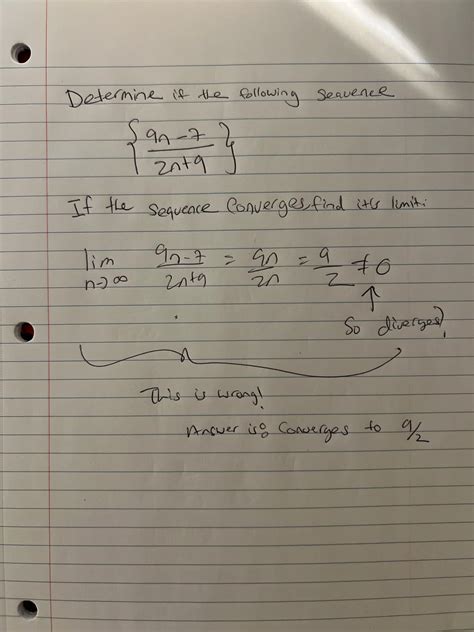 Determine if the following sequence
{ 9n-7 / 2n+9 }
If the sequence converges, find it's limit.
lim n→∞ 9n-7 / 2n+9 = 9n / 2n = 9 / 2 ≠ 0
↑
So diverges?
This is wrong!
Answer is: Converges to 9/2